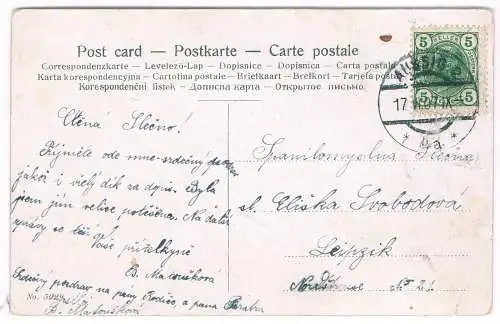 Post card – Postkarte – Carte postale
Correspondenzkarte – Levelező-Lap – Dopisnice – Dopisnica – Carta postala
Karta korespondencyjna – Cartolina postale – Briefkaart – Brefkort – Tarjeta postal
Korespondenční listek – Дописна карта – Открытое письмо.
5 5
5 5
AUSSIG 2
17
* 4a *
Ctěná Slečno!
Přijměte ode mne srdečný pozdrav
jakož i vřelý dík za dopis. Byla
jsem jím velice potěšena. Na další
zprávy se těší
Vaše přítelkyně
B. Matoušková
Srdečný pozdrav na pány Rodiče, a pana
No.
B. Matoušková
Spanilomyslná Slečna
sl. Eliška Svobodová
Leipzik
No 21.